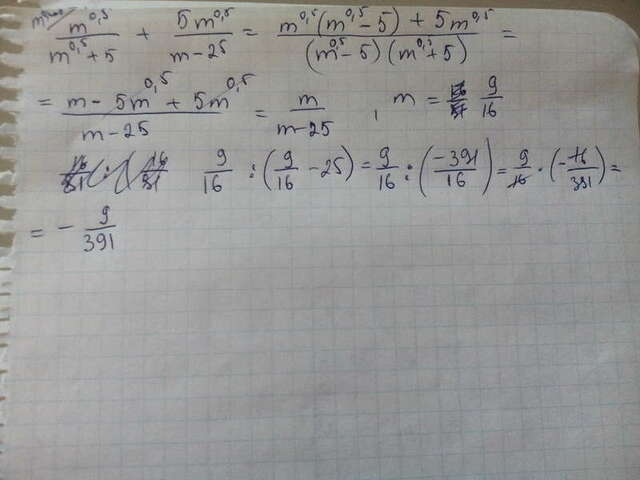 m^0,5/(m^0,5 + 5) + 5m^0,5/(m - 25) = (m^0,5(m^0,5 - 5) + 5m^0,5)/((m^0,5 - 5)(m^0,5 + 5)) =
= (m - 5m^0,5 + 5m^0,5)/(m - 25) = m/(m - 25) , m = 9/16
9/16 : (9/16 - 25) = 9/16 : (-391/16) = 9/16 · (-16/391) =
= - 9/391